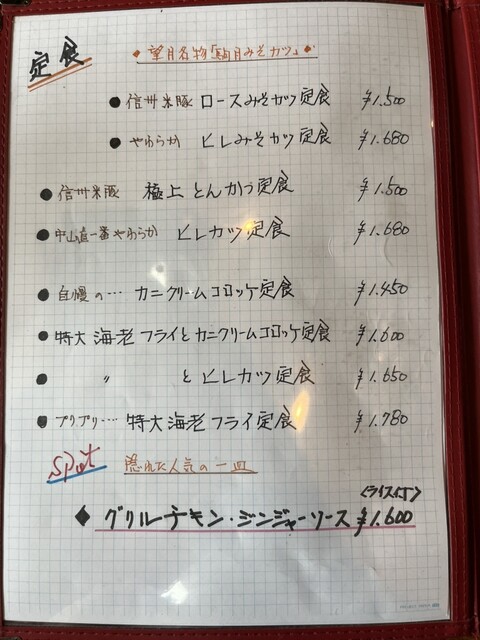 定食
望月名物「駒月みそカツ」
● 信州米豚 ロースみそカツ定食 ¥1.500
● やわらか ヒレみそカツ定食 ¥1.680
● 信州米豚 極上とんかつ定食 ¥1.500
● 中山直一番やわらか ヒレカツ定食 ¥1.680
● 自慢の… カニクリームコロッケ定食 ¥1.450
● 特大海老フライとカニクリームコロッケ定食 ¥1.600
● 〃 とヒレカツ定食 ¥1.650
● プリプリ… 特大海老フライ定食 ¥1.780
Spot 隠れた人気の一皿
〈ライス付〉
◆ グリルチキン・ジンジャーソース ¥1.600